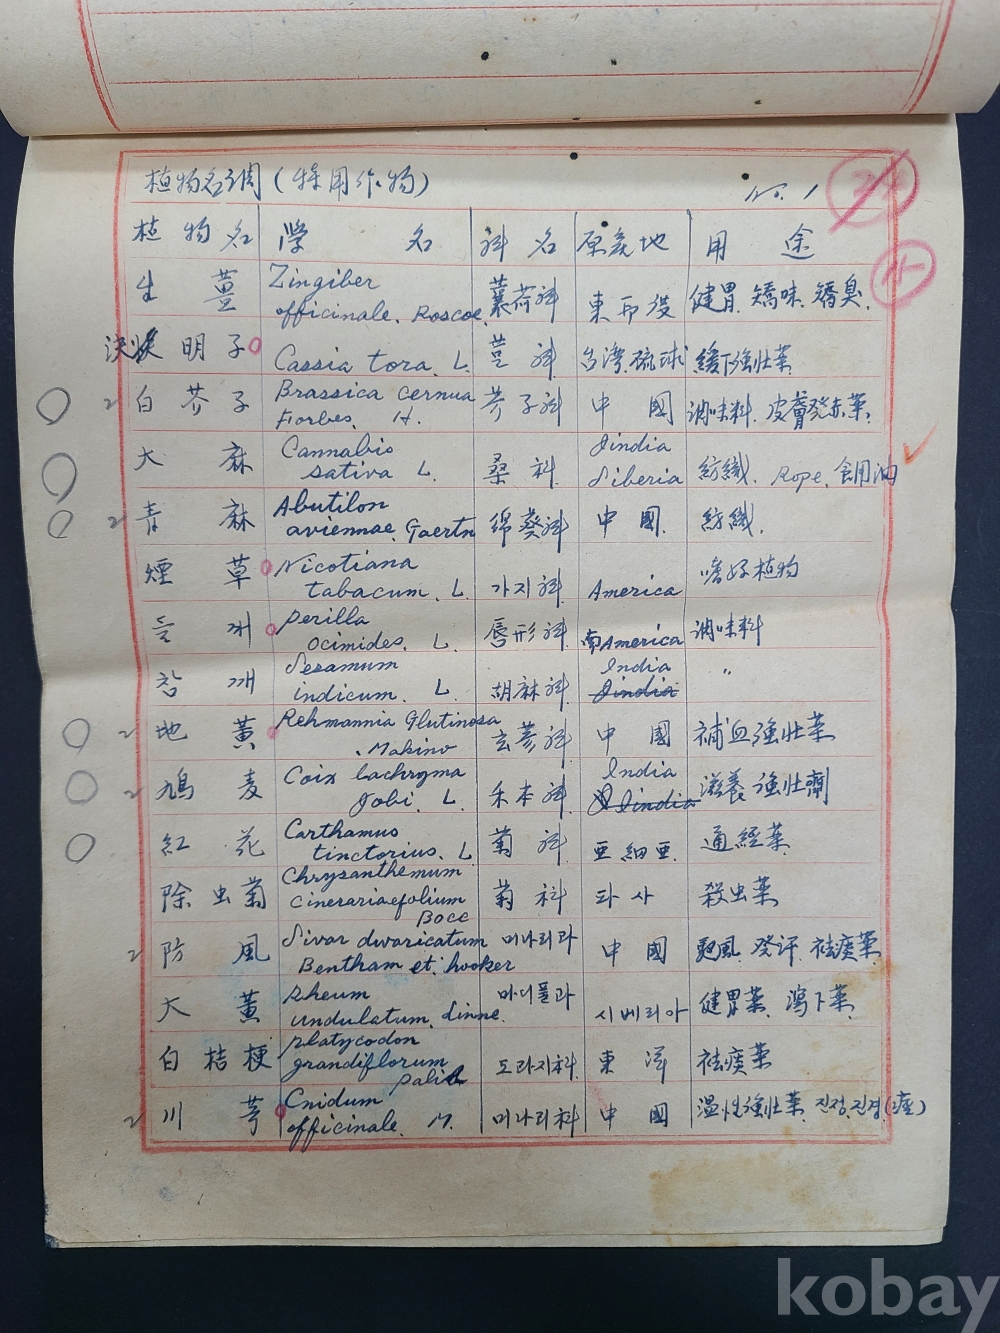 植物名調 (特用作物) No. 1
植物名 学名 科名 原産地 用途
生薑 Zingiber officinale. Roscoe. 蘘荷科 東印度 健胃. 矯味. 矯臭.
決明子 Cassia tora. L. 荳科 台湾. 琉球 緩下強壮薬
2 白芥子 Brassica cernua Forbes. H. 芥子科 中國 調味料. 皮膚発赤薬.
大麻 Cannabis sativa L. 桑科 Jindia Siberia 紡織. Rope. 食用油
2 青麻 Abutilon aviennae. Gaertn 綿葵科 中國. 紡織.
煙草 Nicotiana tabacum. L. 가지科 America 嗜好植物
들깨 perilla ocimides. L. 唇形科 南America 調味料
참깨 Sesamum indicum. L 胡麻科 India Jindia 〃
2 地黃 Rehmannia Glutinosa. Makino 玄蔘科 中國 補血强壮薬
2 鳩麦 Coix lachryma Jobi. L. 禾本科 India Jindia 滋養 强壮劑
紅花 Carthamus tinctorius. L 菊科 亜細亜. 通経薬
除虫菊 Chrysanthemum cinerariaefolium Bocc 菊科 타사 殺虫薬
2 防風 Sivar dwaricatum Bentham et. hooker 미나리과 中國 発汗. 袪痰薬
大黃 Rheum undulatum. Linne. 마디풀과 시베리아 健胃薬. 瀉下薬.
白桔梗 platycodon grandiflorum 도라지科 東洋 袪痰薬
2 川芎 Cnidum officinale. M. 미나리科 中國 温性强壮薬. 진정. 진경